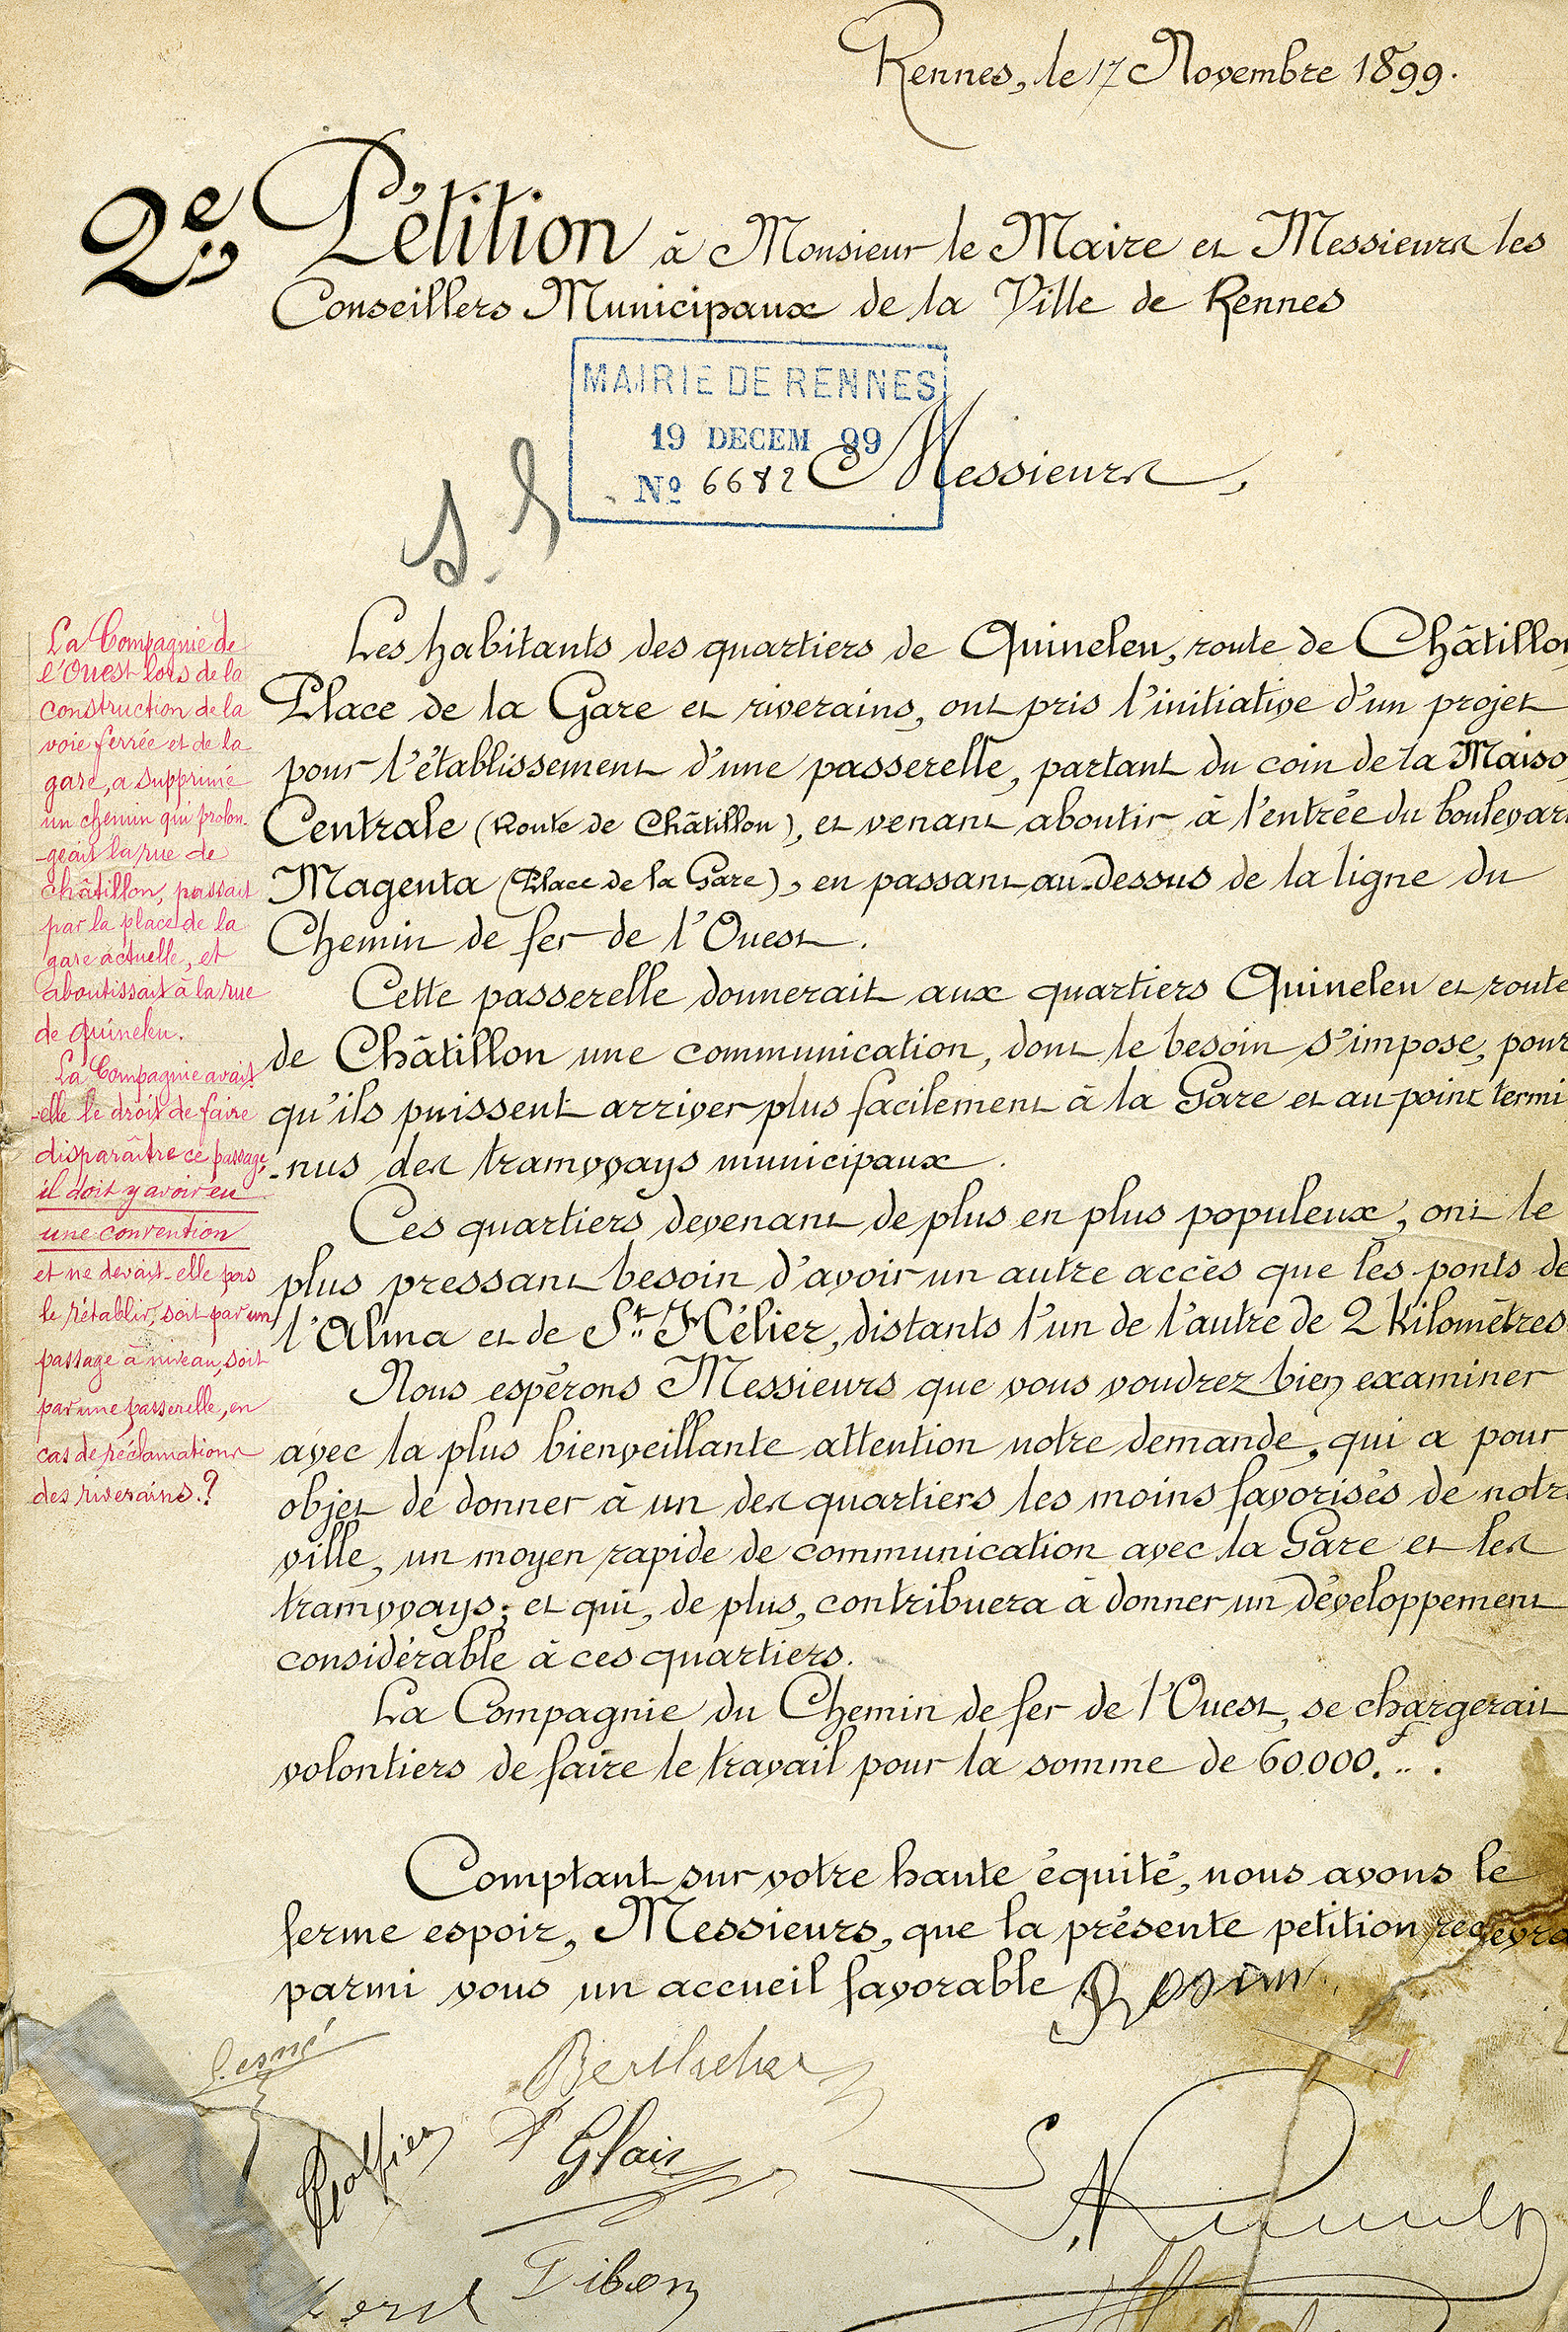 Rennes, le 17 Novembre 1899.
2e Pétition à Monsieur le Maire et Messieurs les
Conseillers Municipaux de la Ville de Rennes
MAIRIE DE RENNES
19 DECEM 99
No 6682
Messieurs,
La Compagnie de
l'Ouest lors de la
construction de la
voie ferrée et de la
gare, a supprimé
un chemin qui prolon-
-geait la rue de
châtillon, passait
par la place de la
gare actuelle, et
aboutissait à la rue
de quineleu.
La Compagnie avait
-elle le droit de faire
disparaître ce passage,
il doit y avoir eu
une convention
et ne devait-elle pas
le rétablir, soit par un
passage à niveau, soit
par une passerelle, en
cas de réclamations
des riverains?
Les habitants des quartiers de Quineleu, route de Châtillon
Place de la Gare et riverains, ont pris l'initiative d'un projet
pour l'établissement d'une passerelle, partant du coin de la Maiso
Centrale (Route de Châtillon), et venant aboutir à l'entrée du boulevar
Magenta (Place de la Gare), en passant au-dessus de la ligne du
Chemin de fer de l'Ouest.
Cette passerelle donnerait aux quartiers Quineleu et route
de Châtillon une communication, dont le besoin s'impose, pour
qu'ils puissent arriver plus facilement à la Gare et au point termi
-nus des tramways municipaux.
Ces quartiers devenant de plus en plus populeux, ont le
plus pressant besoin d'avoir un autre accès que les ponts de
l'Alma et de St Hélier, distants l'un de l'autre de 2 kilomètres
Nous espérons Messieurs que vous voudrez bien examiner
avec la plus bienveillante attention notre demande, qui a pour
objet de donner à un des quartiers les moins favorisés de notre
ville, un moyen rapide de communication avec la Gare et les
tramways; et qui, de plus, contribuera à donner un développement
considérable à ces quartiers.
La Compagnie du Chemin de fer de l'Ouest, se chargerait
volontiers de faire le travail pour la somme de 60.000.f.. .
Comptant sur votre haute équité, nous avons le
ferme espoir, Messieurs, que la présente petition recevra
parmi vous un accueil favorable
Glais
Gibon